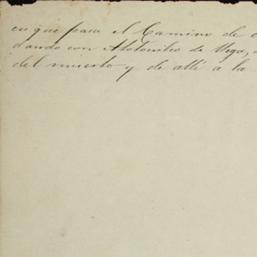 en que pasa el Camino de
dando con Atotonilco de Vega,
del muerto y de alli á la